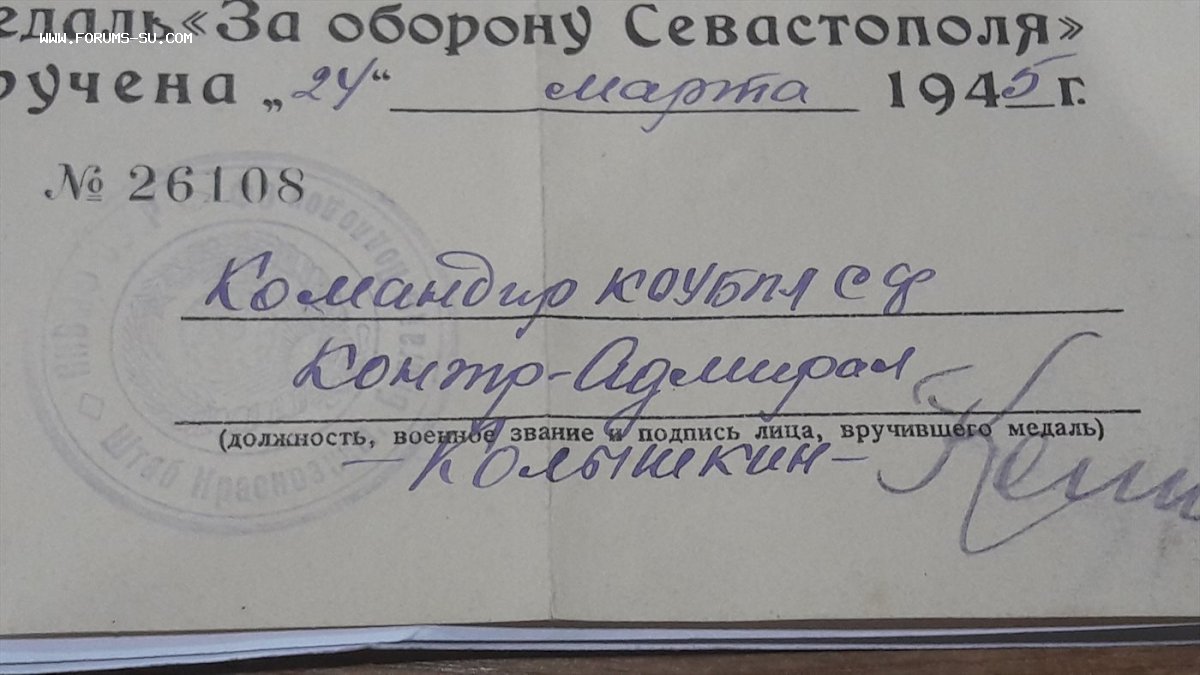 едаль «За оборону Севастополя»
WWW.FORUMS-SU.COM
ручена „24“ марта 1945 г.
№ 26108
Командир КОУБПЛ СФ
Контр-Адмирал
(должность, военное звание и подпись лица, вручившего медаль)
-Колышкин-
Штаб Краснозн